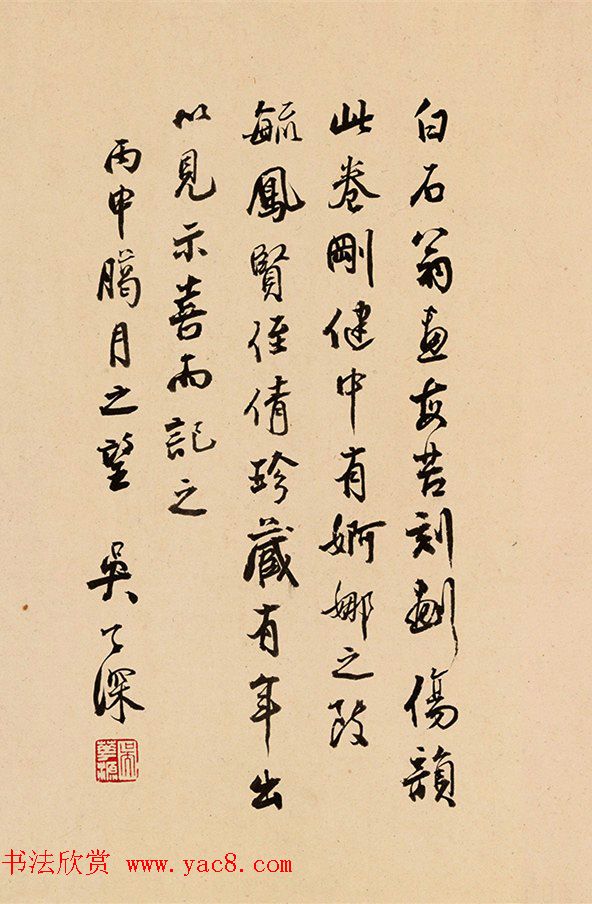 白石翁畫每苦刻劃傷韻
此卷剛健中有婀娜之致
毓鳳賢侄倩珍藏有年出
以見示喜而記之
丙申臈月之望 吳子深
吳華源
书法欣赏 www.yac8.com